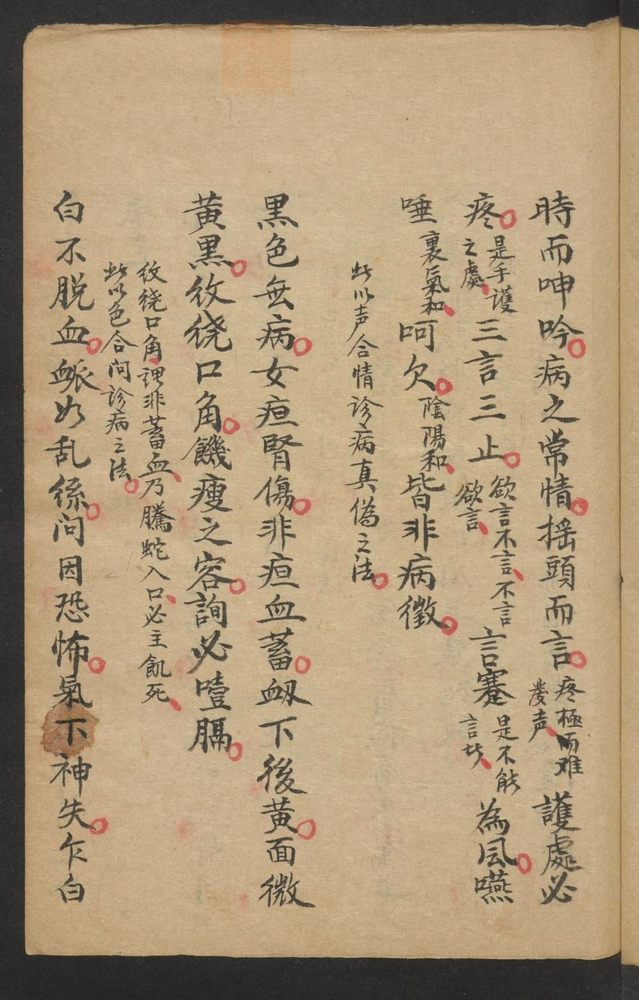 時而呻吟。病之常情。搖頭而言。疼極而难發声、護處必
疼。是手護之處、三言三止。欲言不言、不言欲言、言蹇是不能言、為风。嚥
唾裏氣和、呵欠。陰陽和、皆非病徵。
此以声合情診病真偽之法。
黑色無病。女疸腎傷。非疸血蓄。衂下後黄。面微
黄黑。紋绕口角。饑瘦之容。詢必噎膈。
紋绕口角謂非蓄血、乃騰蛇入口、必主飢死、
此以色合问診病之法。
白不脱血。脈如乱絲。问因恐怖。氣下神失。乍白